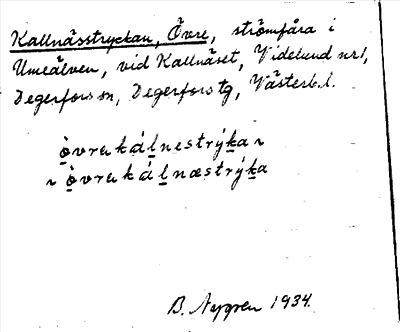 Kallnässtryckan, Övre, strömfåra i
Umeälven, vid Kallnäset, Videlund nr 1,
Degerfors sn, Degerfors tg, Västerb. l.
ò̱vrɐkáḻnestrýḵa ~
~ ò̱vrɐkáḻnæstrýḵa
B. Nygren 1934.